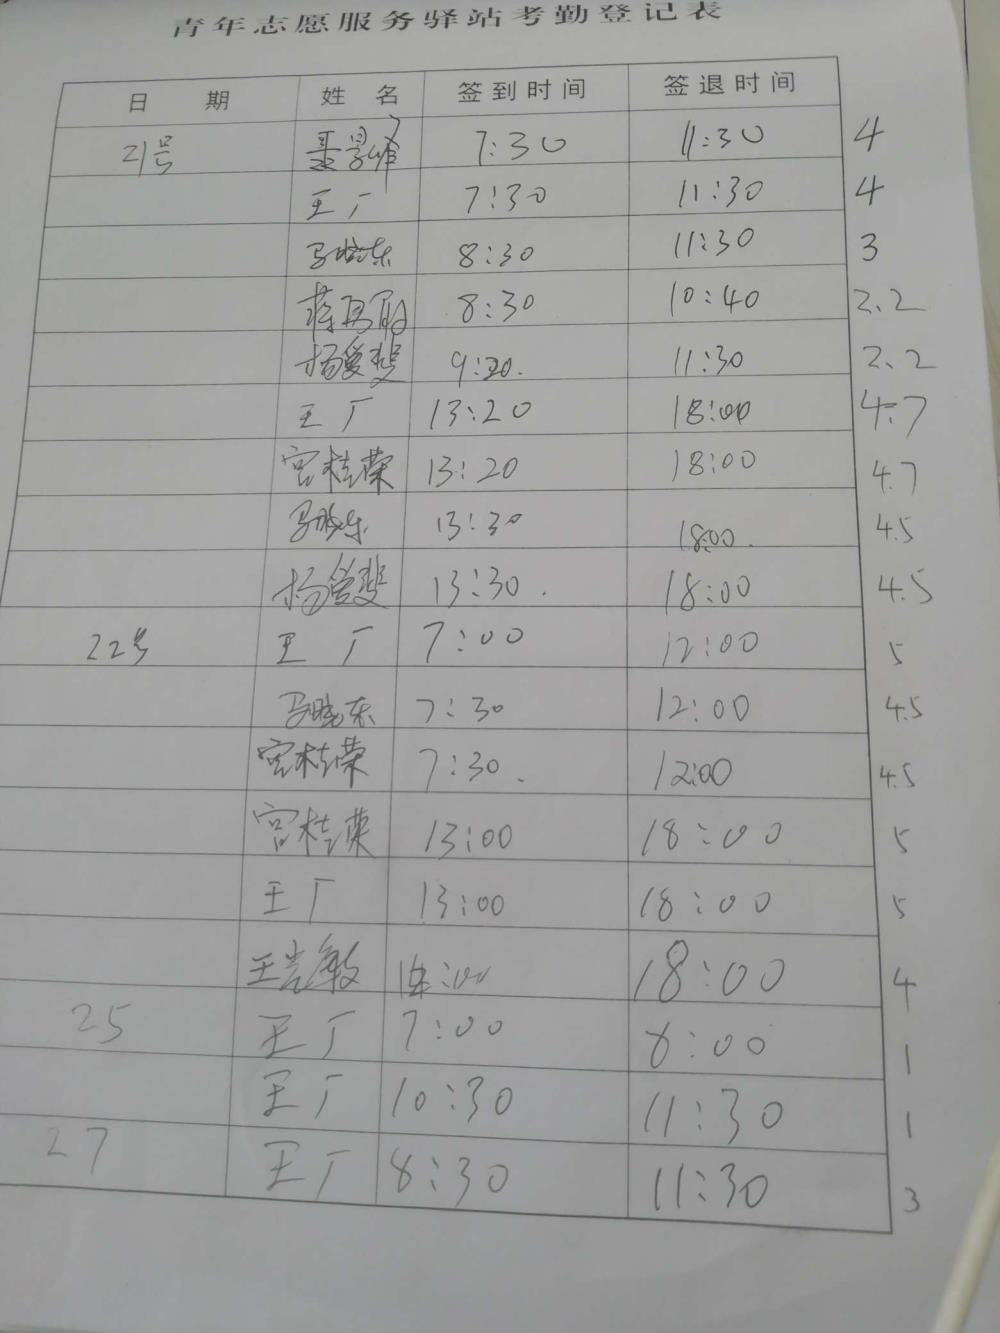 青年志愿服务驿站考勤登记表
日 期 姓 名 签到时间 签退时间
21号 聂景峰 7:30 11:30 4
王厂 7:30 11:30 4
马晓东 8:30 11:30 3
蒋 8:30 10:40 2.2
杨爱斐 9:20. 11:30 2.2
王厂 13:20 18:00 4.7
宫桂荣 13:20 18:00 4.7
马晓东 13:30 18:00. 4.5
杨爱斐 13:30. 18:00 4.5
22号 王厂 7:00 12:00 5
马晓东 7:30 12:00 4.5
宫桂荣 7:30. 12:00 4.5
宫桂荣 13:00 18:00 5
王厂 13:00 18:00 5
王岩敏 14:00 18:00 4
25 王厂 7:00 8:00 1
王厂 10:30 11:30 1
27 王厂 8:30 11:30 3